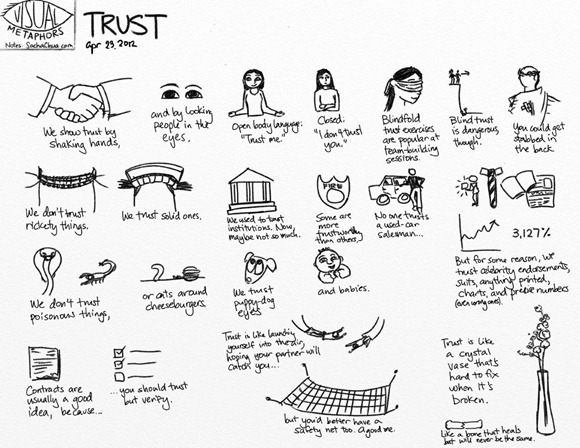 VISUAL
METAPHORS
Notes: SachaChua.com
TRUST
Apr 23, 2012
We show trust by
shaking hands,
and by looking
people in the
eyes,
Open body language:
"Trust me."
Closed:
"I don't trust
you."
Blindfold
trust exercises
are popular at
team-building
sessions.
Blind trust
is dangerous,
though.
You could get
stabbed in
the back.
We don't trust
rickety things.
We trust solid ones.
We used to trust
institutions. Now,
maybe not so much.
FIRE
Some are
more
trustworthy
than others.
No one trusts
a used-car
salesman...
3,127%
But for some reason, we
trust celebrity endorsements,
suits, anything printed,
charts, and precise numbers
(even wrong ones).
We don't trust
poisonous things,
or cats around
cheeseburgers.
We trust
puppy-dog
eyes
and babies.
Contracts are
usually a good
idea, because...
...you should trust
but verify.
Trust is like launching
yourself into the air,
hoping your partner will
catch you...
but you'd better have a
safety net too. A good one.
Trust is like
a crystal
vase that's
hard to fix
when it's
broken.
Like a bone that heals
but will never be the same.